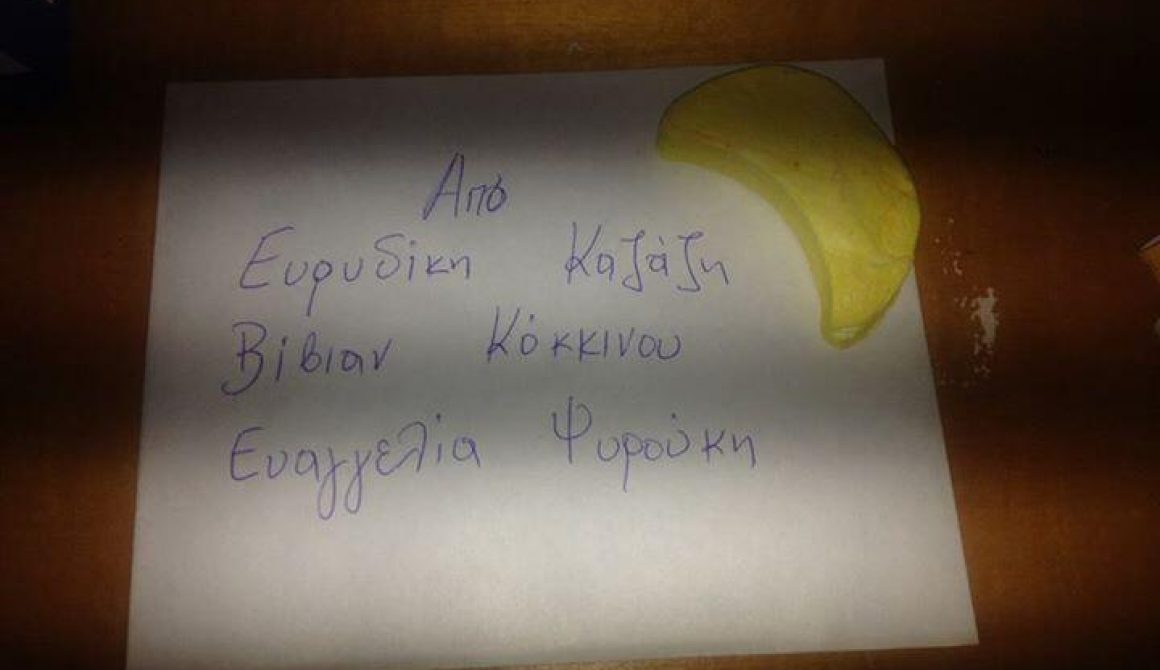 Από
Ευρυδίκη Καζάζη
Βίβιαν Κόκκινου
Ευαγγελία Ψυρούκη